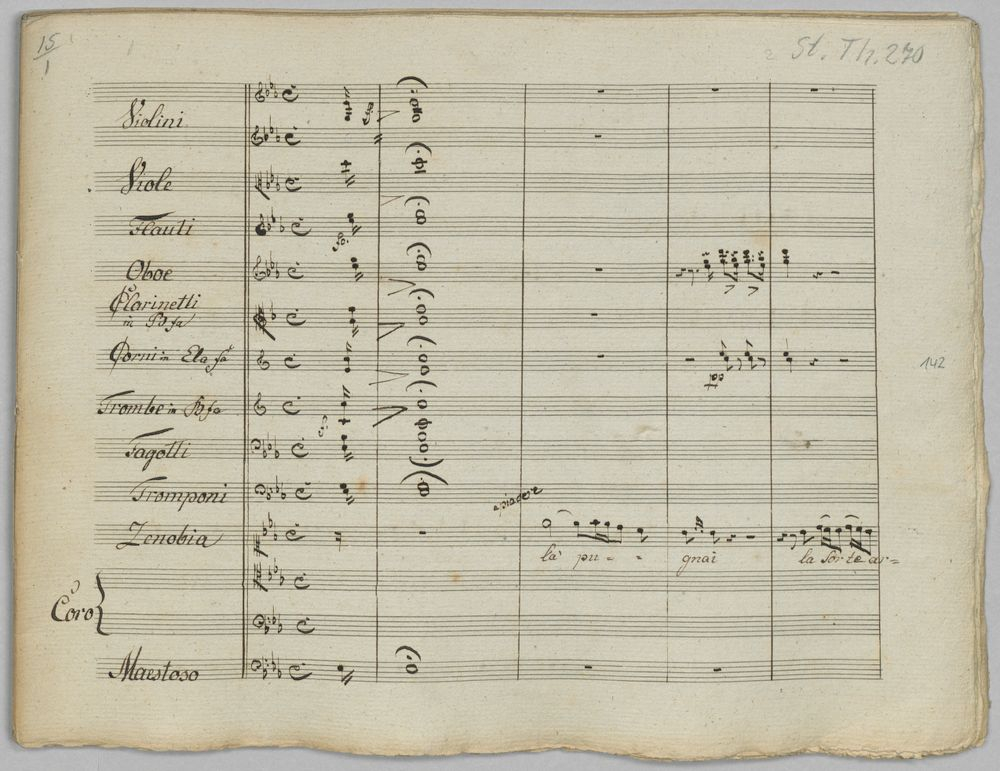 15
1
St. Th. 270
Violini
Viole
Flauti
Oboe
Clarinetti
in Bfa
Corni in Elafa
142
Trombe in Bfa
Fagotti
Tromponi
a piacere
Zenobia
là pu - - gnai la sorte ar=
Coro
Maestoso